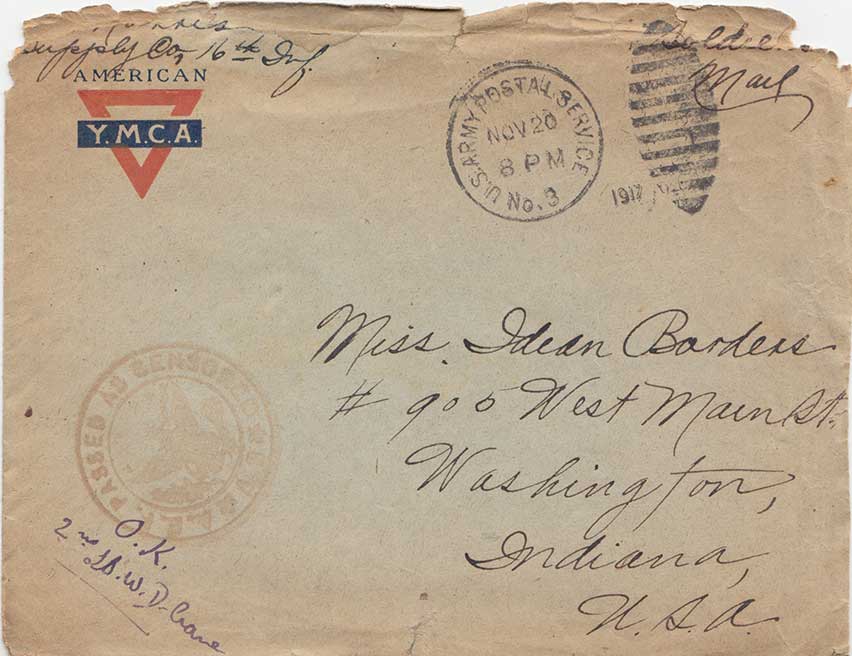 Supply Co, 16th Inf.
AMERICAN
Y.M.C.A.
U.S. ARMY POSTAL SERVICE
NOV 20
8 PM
No. 3
1917
Mail
Miss. Idean Borders
# 905 West Main St.,
Washington,
Indiana,
U.S.A.
PASSED AS CENSORED
A.E.F.
O.K.
2nd Lt. W. D. Crane